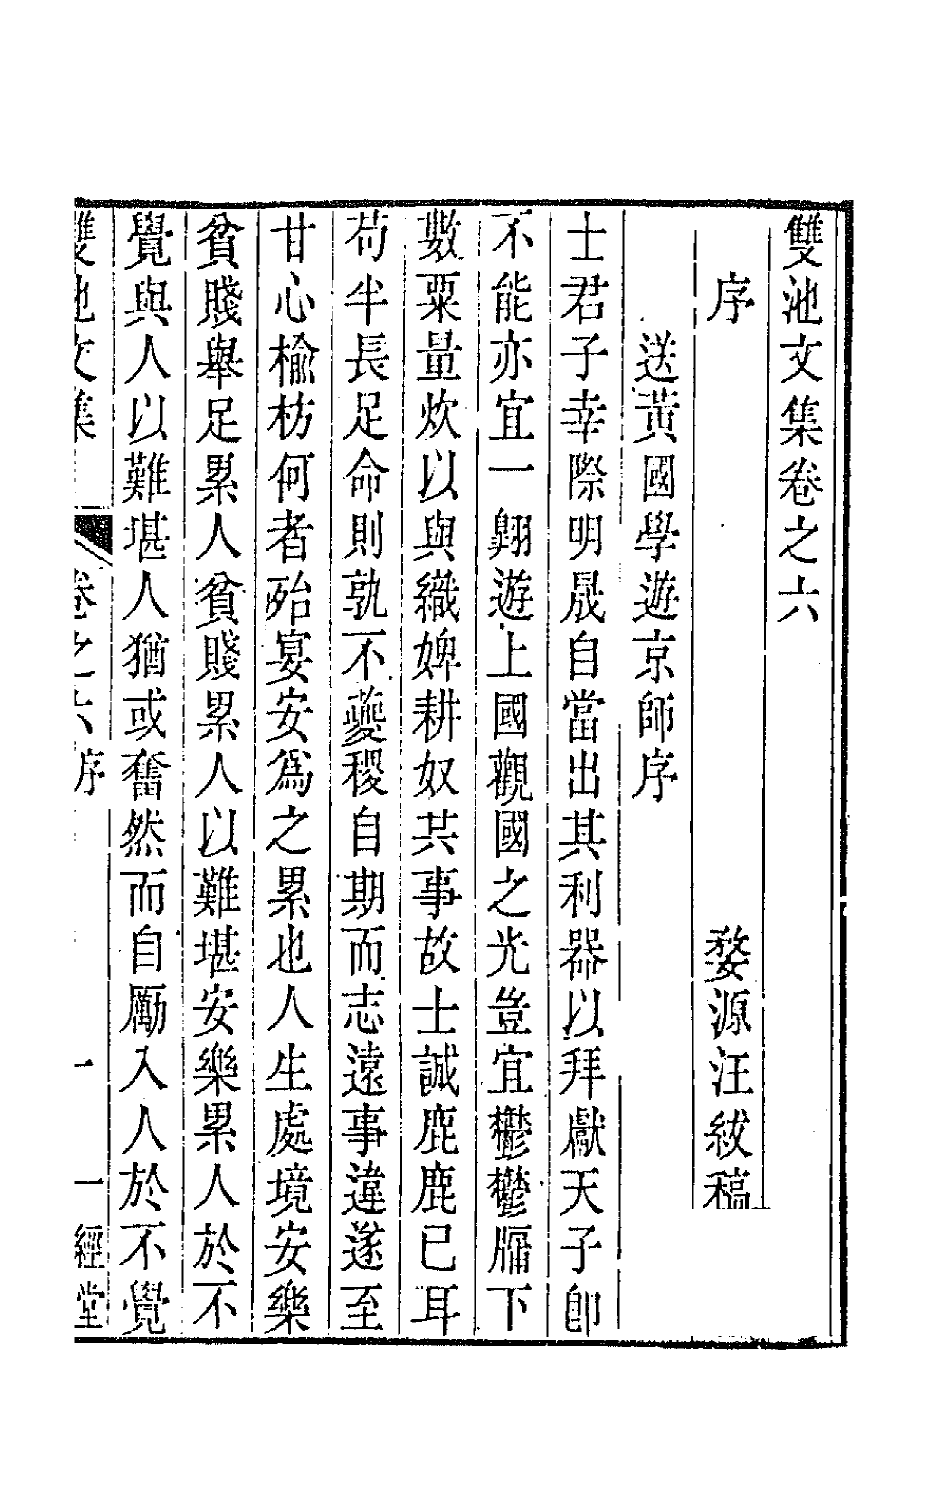 雙池文集卷之六
序　　　　　　　　　婺源汪紱稿
送黃國學遊京師序
士君子幸際明晟自當出其利器以拜獻天子卽
不能亦宜一翺遊上國觀國之光豈宜鬱鬱牖下
數粟量炊以與織婢耕奴共事故士誠鹿鹿已耳
苟半長足命則孰不夔稷自期而志遠事違遂至
甘心榆枋何者殆宴安爲之累也人生處境安樂
貧賤舉足累人貧賤累人以難堪安樂累人於不
覺與人以難堪人猶或奮然而自勵入人於不覺
雙池文集　卷之六序　一　一經堂